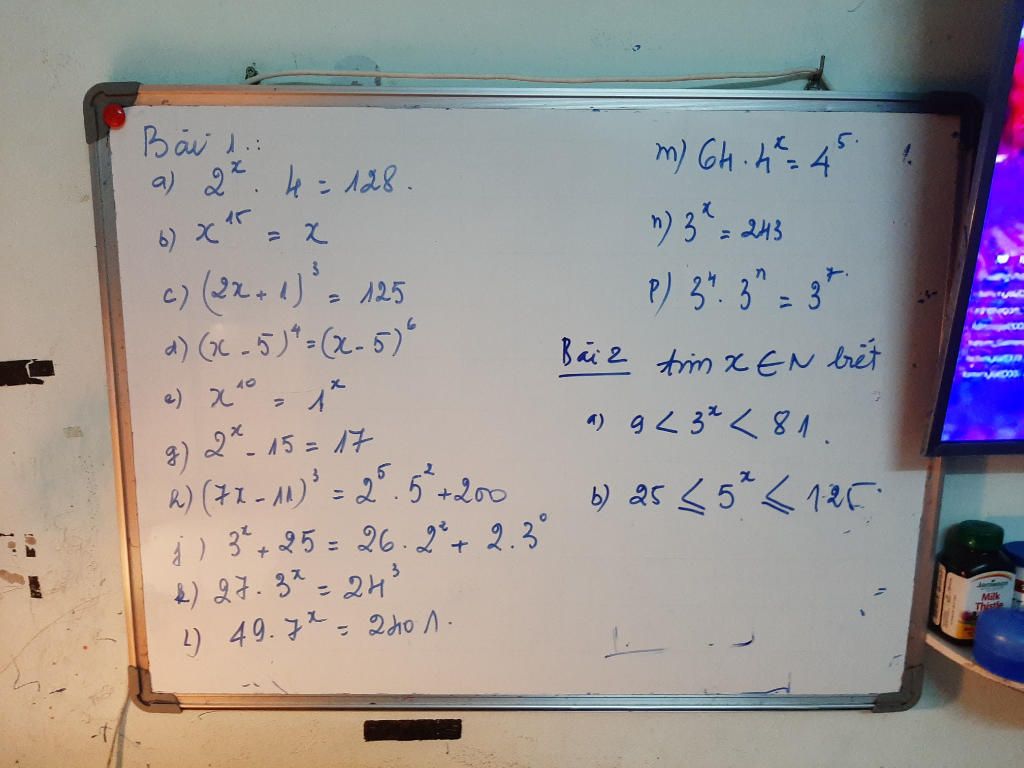 Bài 1:
a) 2^x . 4 = 128.
b) x^15 = x
c) (2x + 1)^3 = 125
d) (x - 5)^4 = (x - 5)^6
e) x^10 = 1^x
g) 2^x - 15 = 17
h) (7x - 11)^3 = 2^5 . 5^2 + 200
j) 3^x + 25 = 26 . 2^2 + 2 . 3^0
k) 27 . 3^x = 243
l) 49 . 7^x = 2401.
m) 64 . 4^x = 4^5.
n) 3^x = 243
p) 3^4 . 3^n = 3^7.
Bài 2 tìm x ∈ N biết
a) 9 < 3^x < 81.
b) 25 ≤ 5^x ≤ 125.
Jamieson
Milk
Thistle